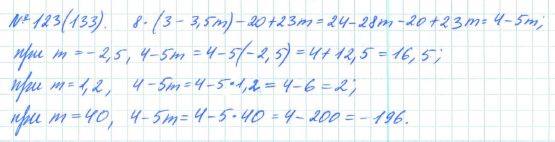 № 123(133). 8·(3-3,5m)-20+23m=24-28m-20+23m=4-5m;
при m=-2,5, 4-5m=4-5(-2,5)=4+12,5=16,5;
при m=1,2, 4-5m=4-5·1,2=4-6=2;
при m=40, 4-5m=4-5·40=4-200=-196.